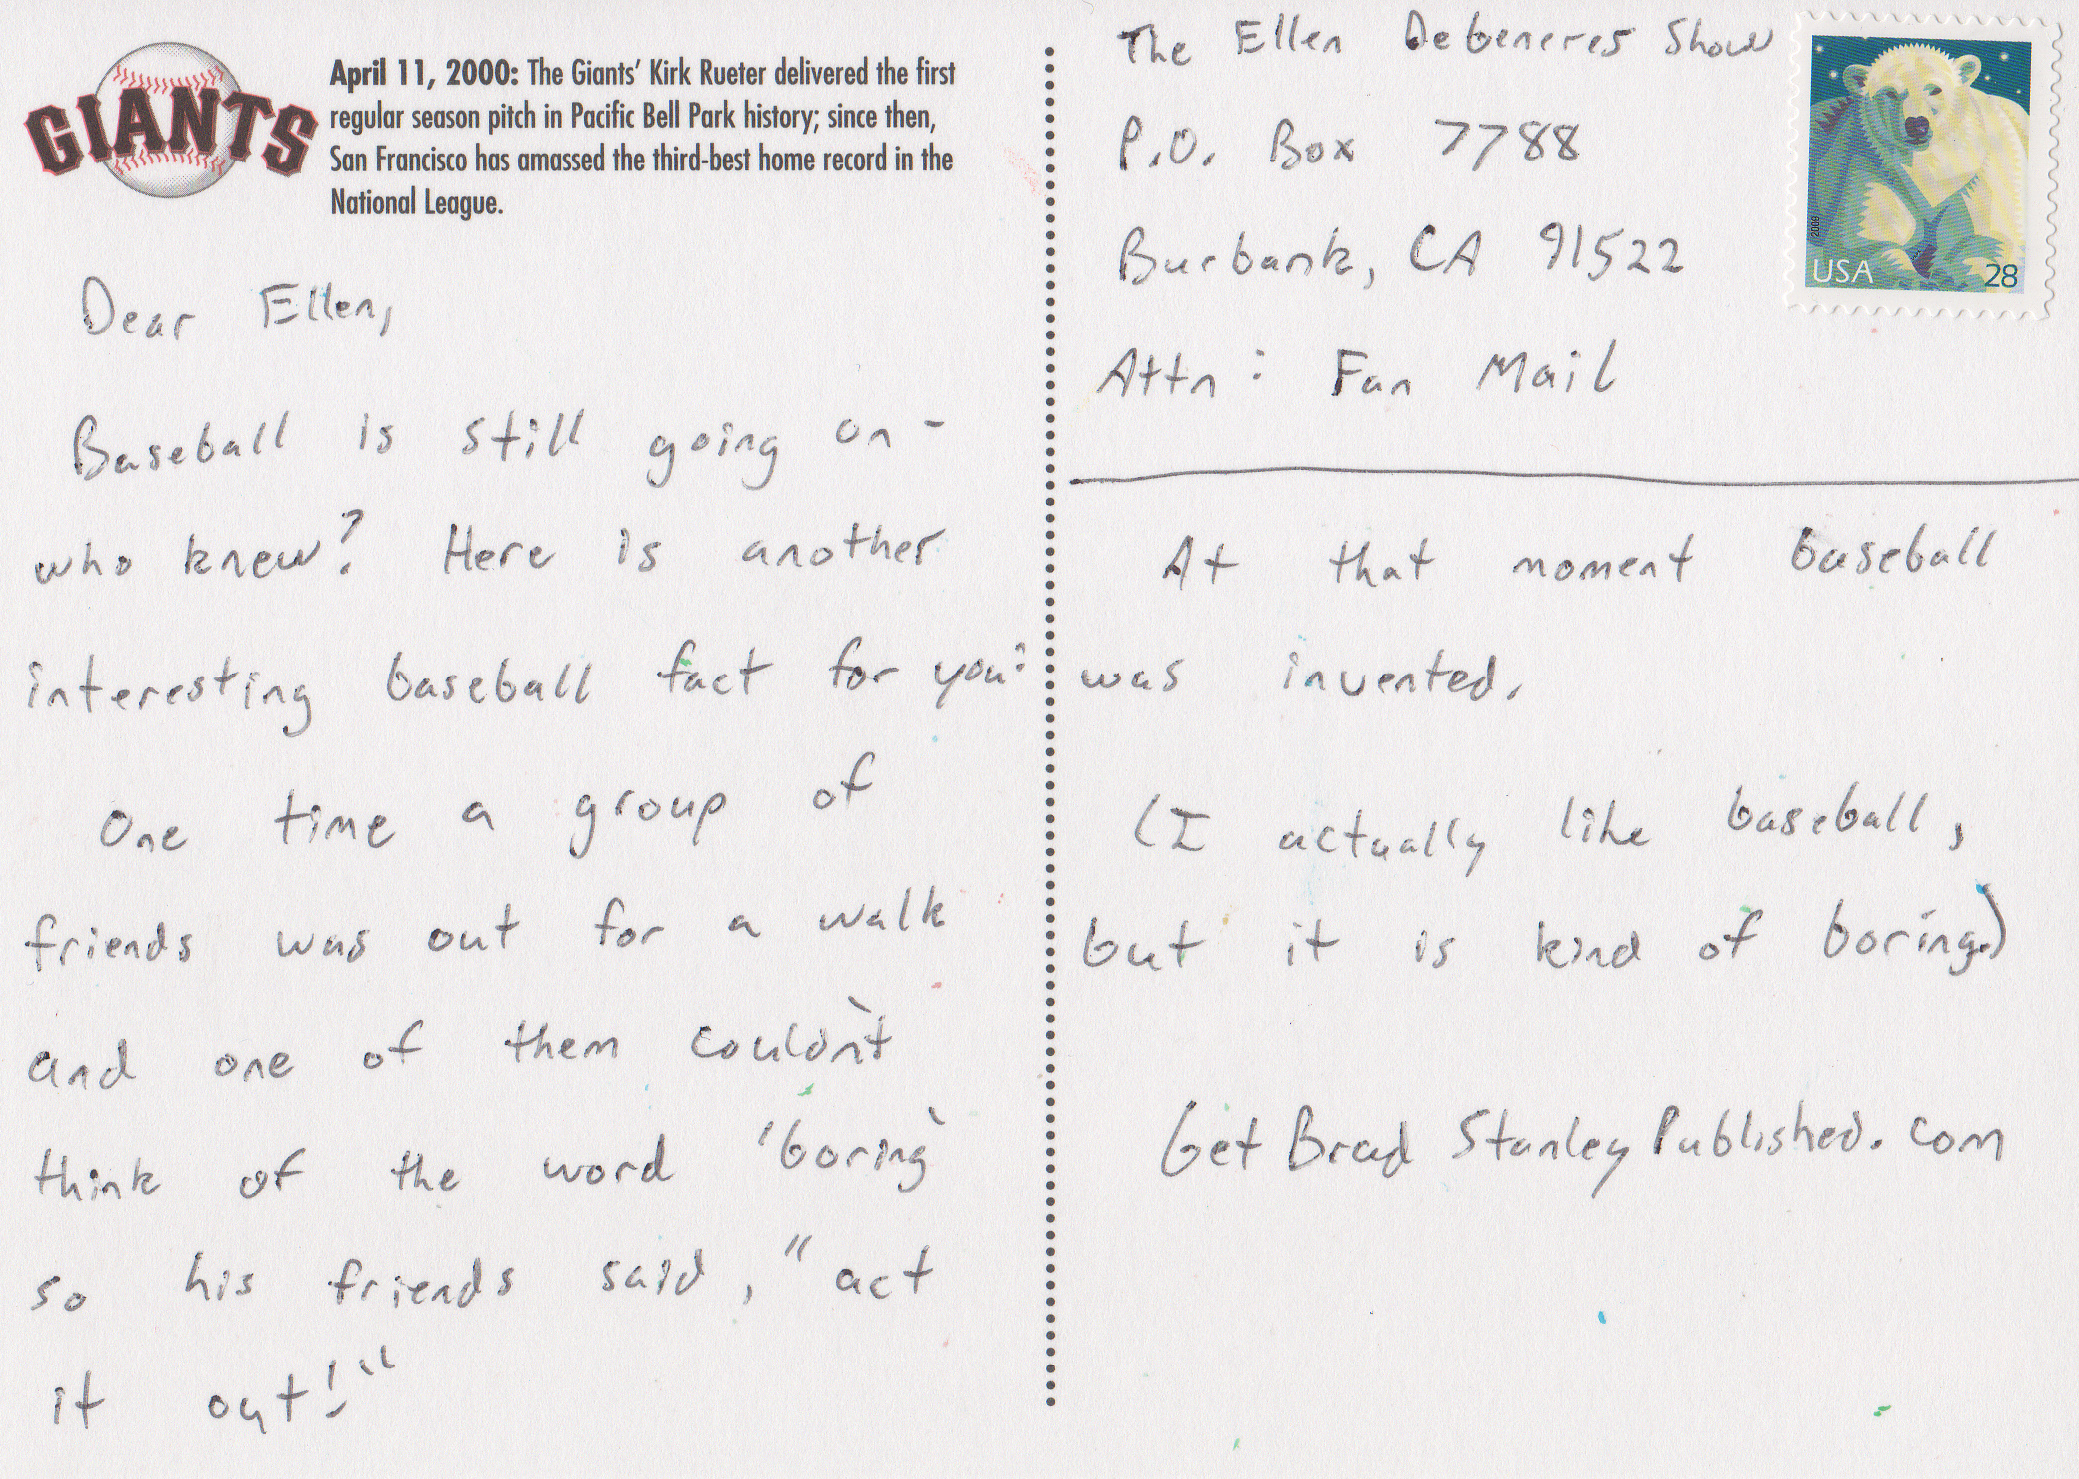 GIANTS
April 11, 2000: The Giants' Kirk Rueter delivered the first
regular season pitch in Pacific Bell Park history; since then,
San Francisco has amassed the third-best home record in the
National League.
Dear Ellen,
Baseball is still going on -
who knew? Here is another
interesting baseball fact for you:
One time a group of
friends was out for a walk
and one of them couldn't
think of the word 'boring'
so his friends said, "act
it out!"
The Ellen Debeneres Show
P.O. Box 7788
Burbank, CA 91522
Attn: Fan Mail
2009
USA 28
At that moment baseball
was invented.
(I actually like baseball,
but it is kind of boring.)
GetBradStanleyPublished.com